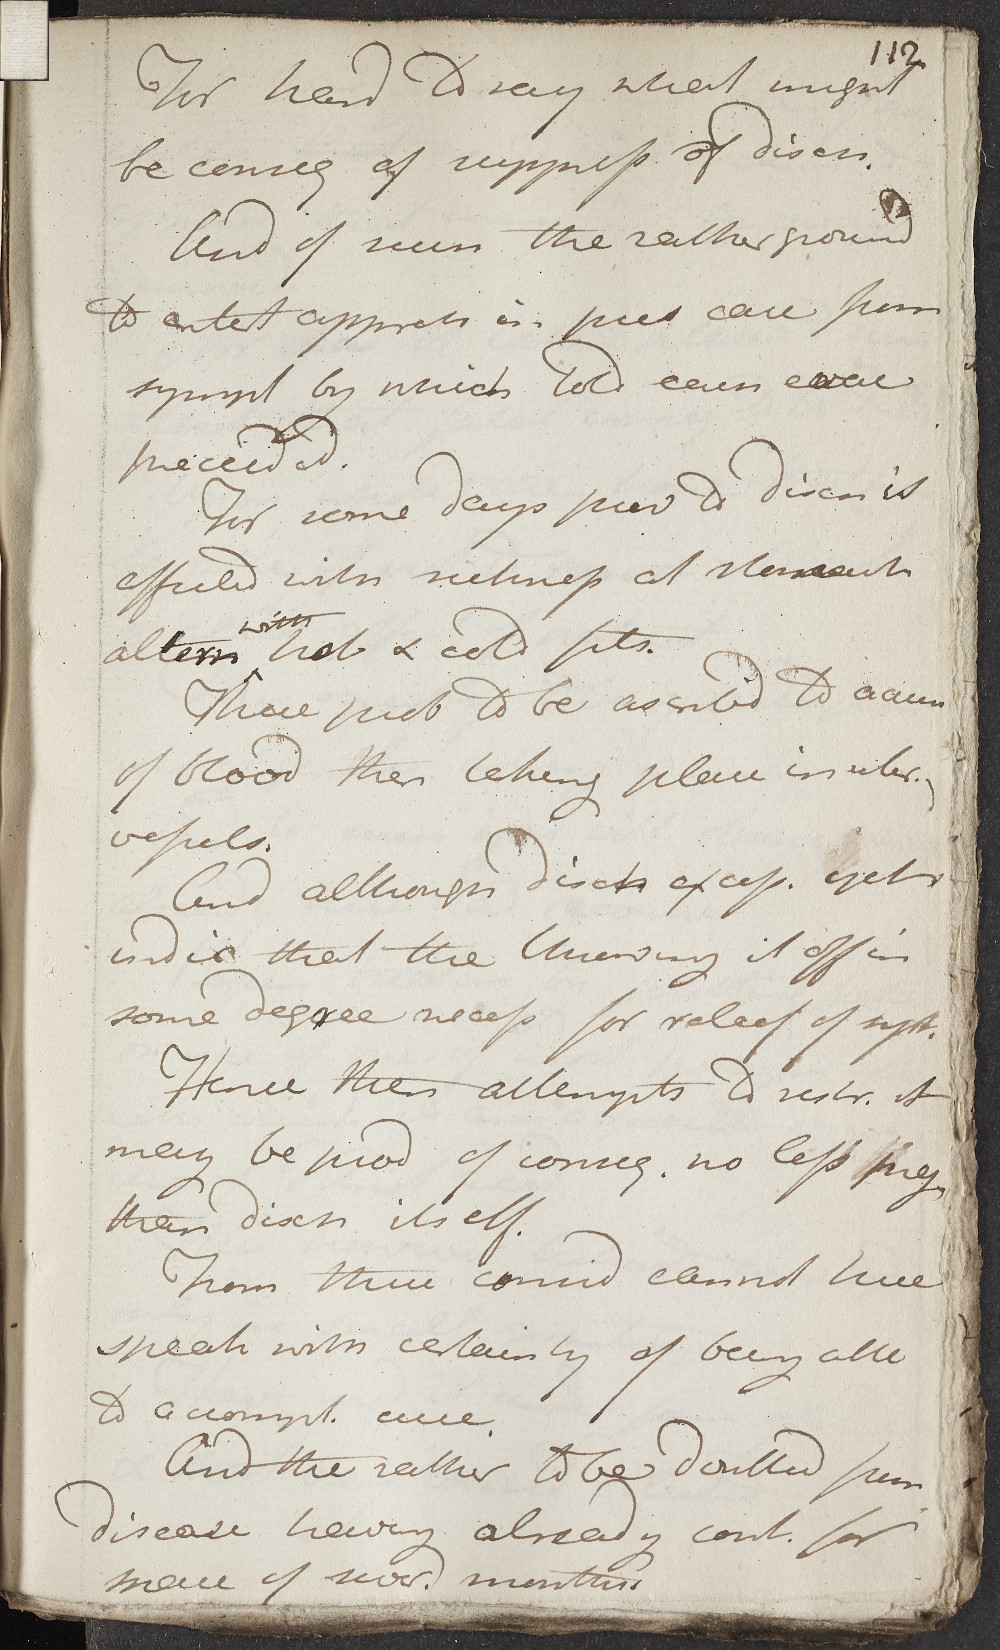 112
For hard to say what might
be conseq of suppress of disch.
And of such the rather ground
to entert appreh in pres case from
sympt by which told each evac
preceeded.
For some days prev to disch is
affected with sickness at stomach
altern with hot & cold fits.
These prob to be ascribed to accum
of blood then taking place in uter.
vessels.
And although disch excess. yet
indic that the throwing it off in
some degree necess for releef of sypt.
Hence then attempts to restr. it
may be prod of conseq. no less
than disch itself.
From these consid cannot here
speak with certainty of being able
to accompl. cure.
And the rather to be doubted from
disease having already cont. for
space of sever. months